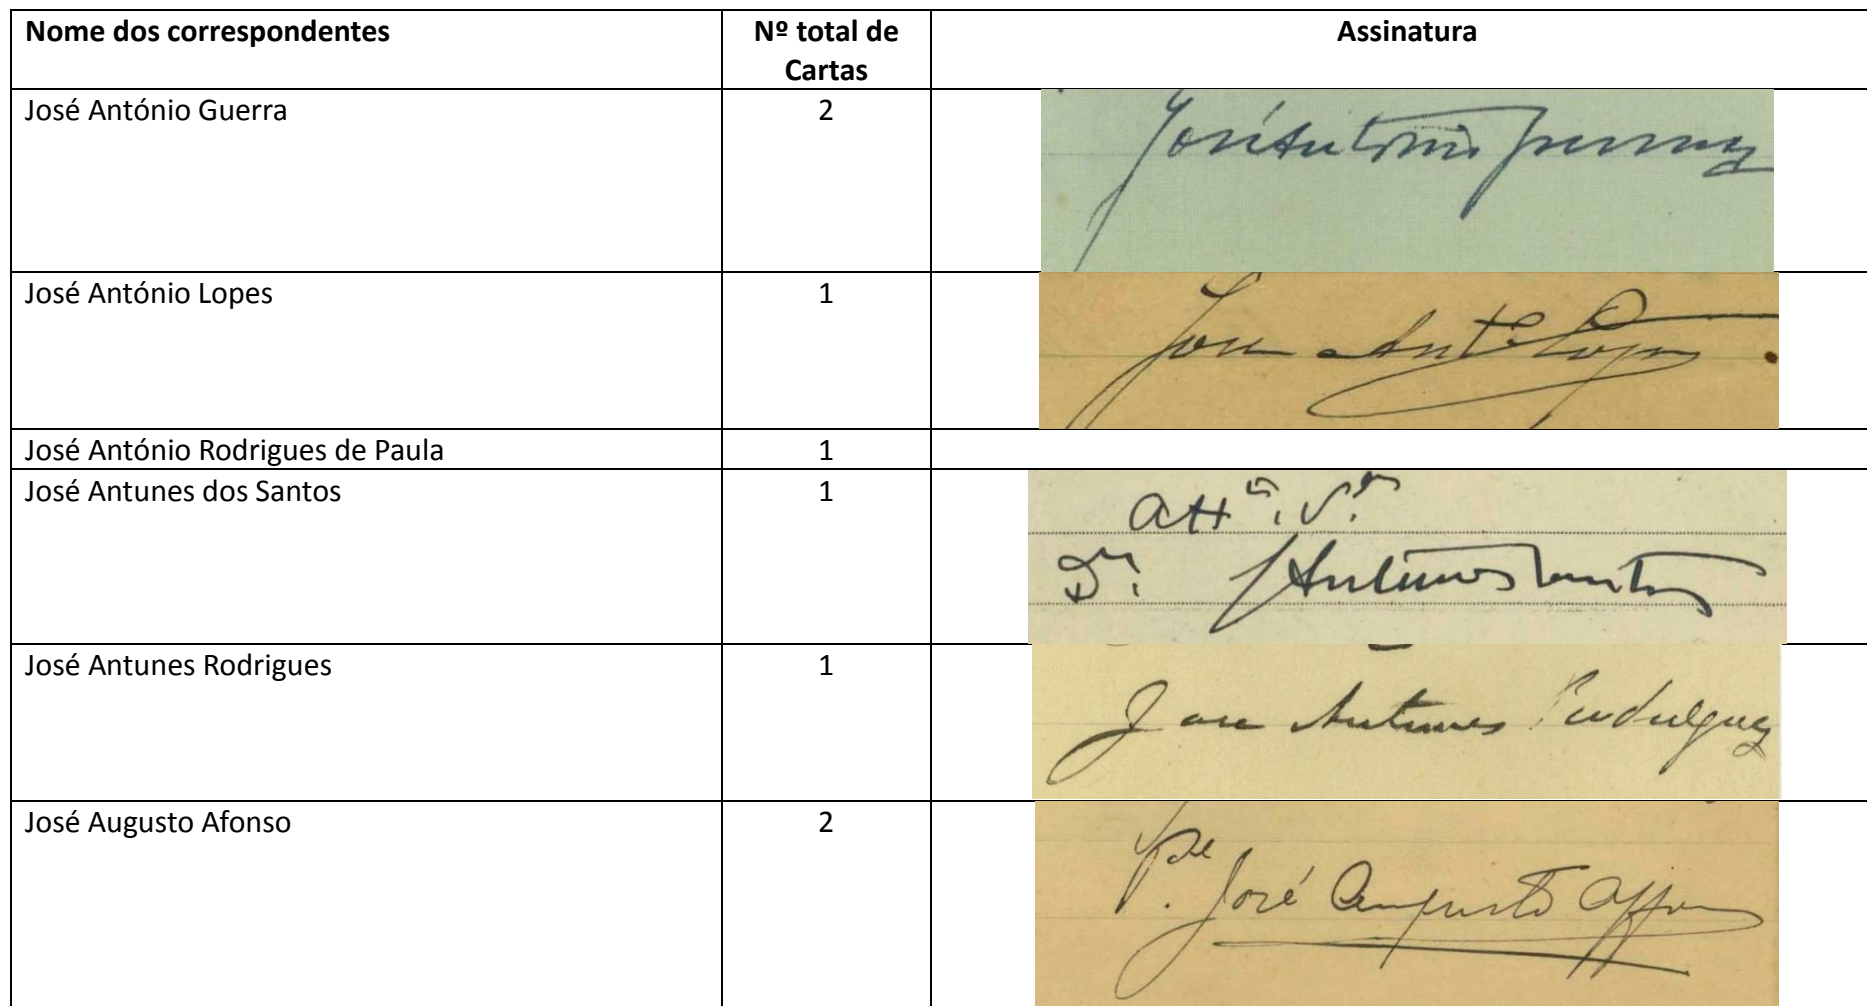 Nome dos correspondentes Nº total de Cartas Assinatura
José António Guerra 2
José António Guerra
José António Lopes 1
José Antº Lopes
José António Rodrigues de Paula 1
José Antunes dos Santos 1
Attº. V.ºr
Dr. J Antunes Santos
José Antunes Rodrigues 1
José Antunes Rodrigues
José Augusto Afonso 2
P. José Augusto Affonso